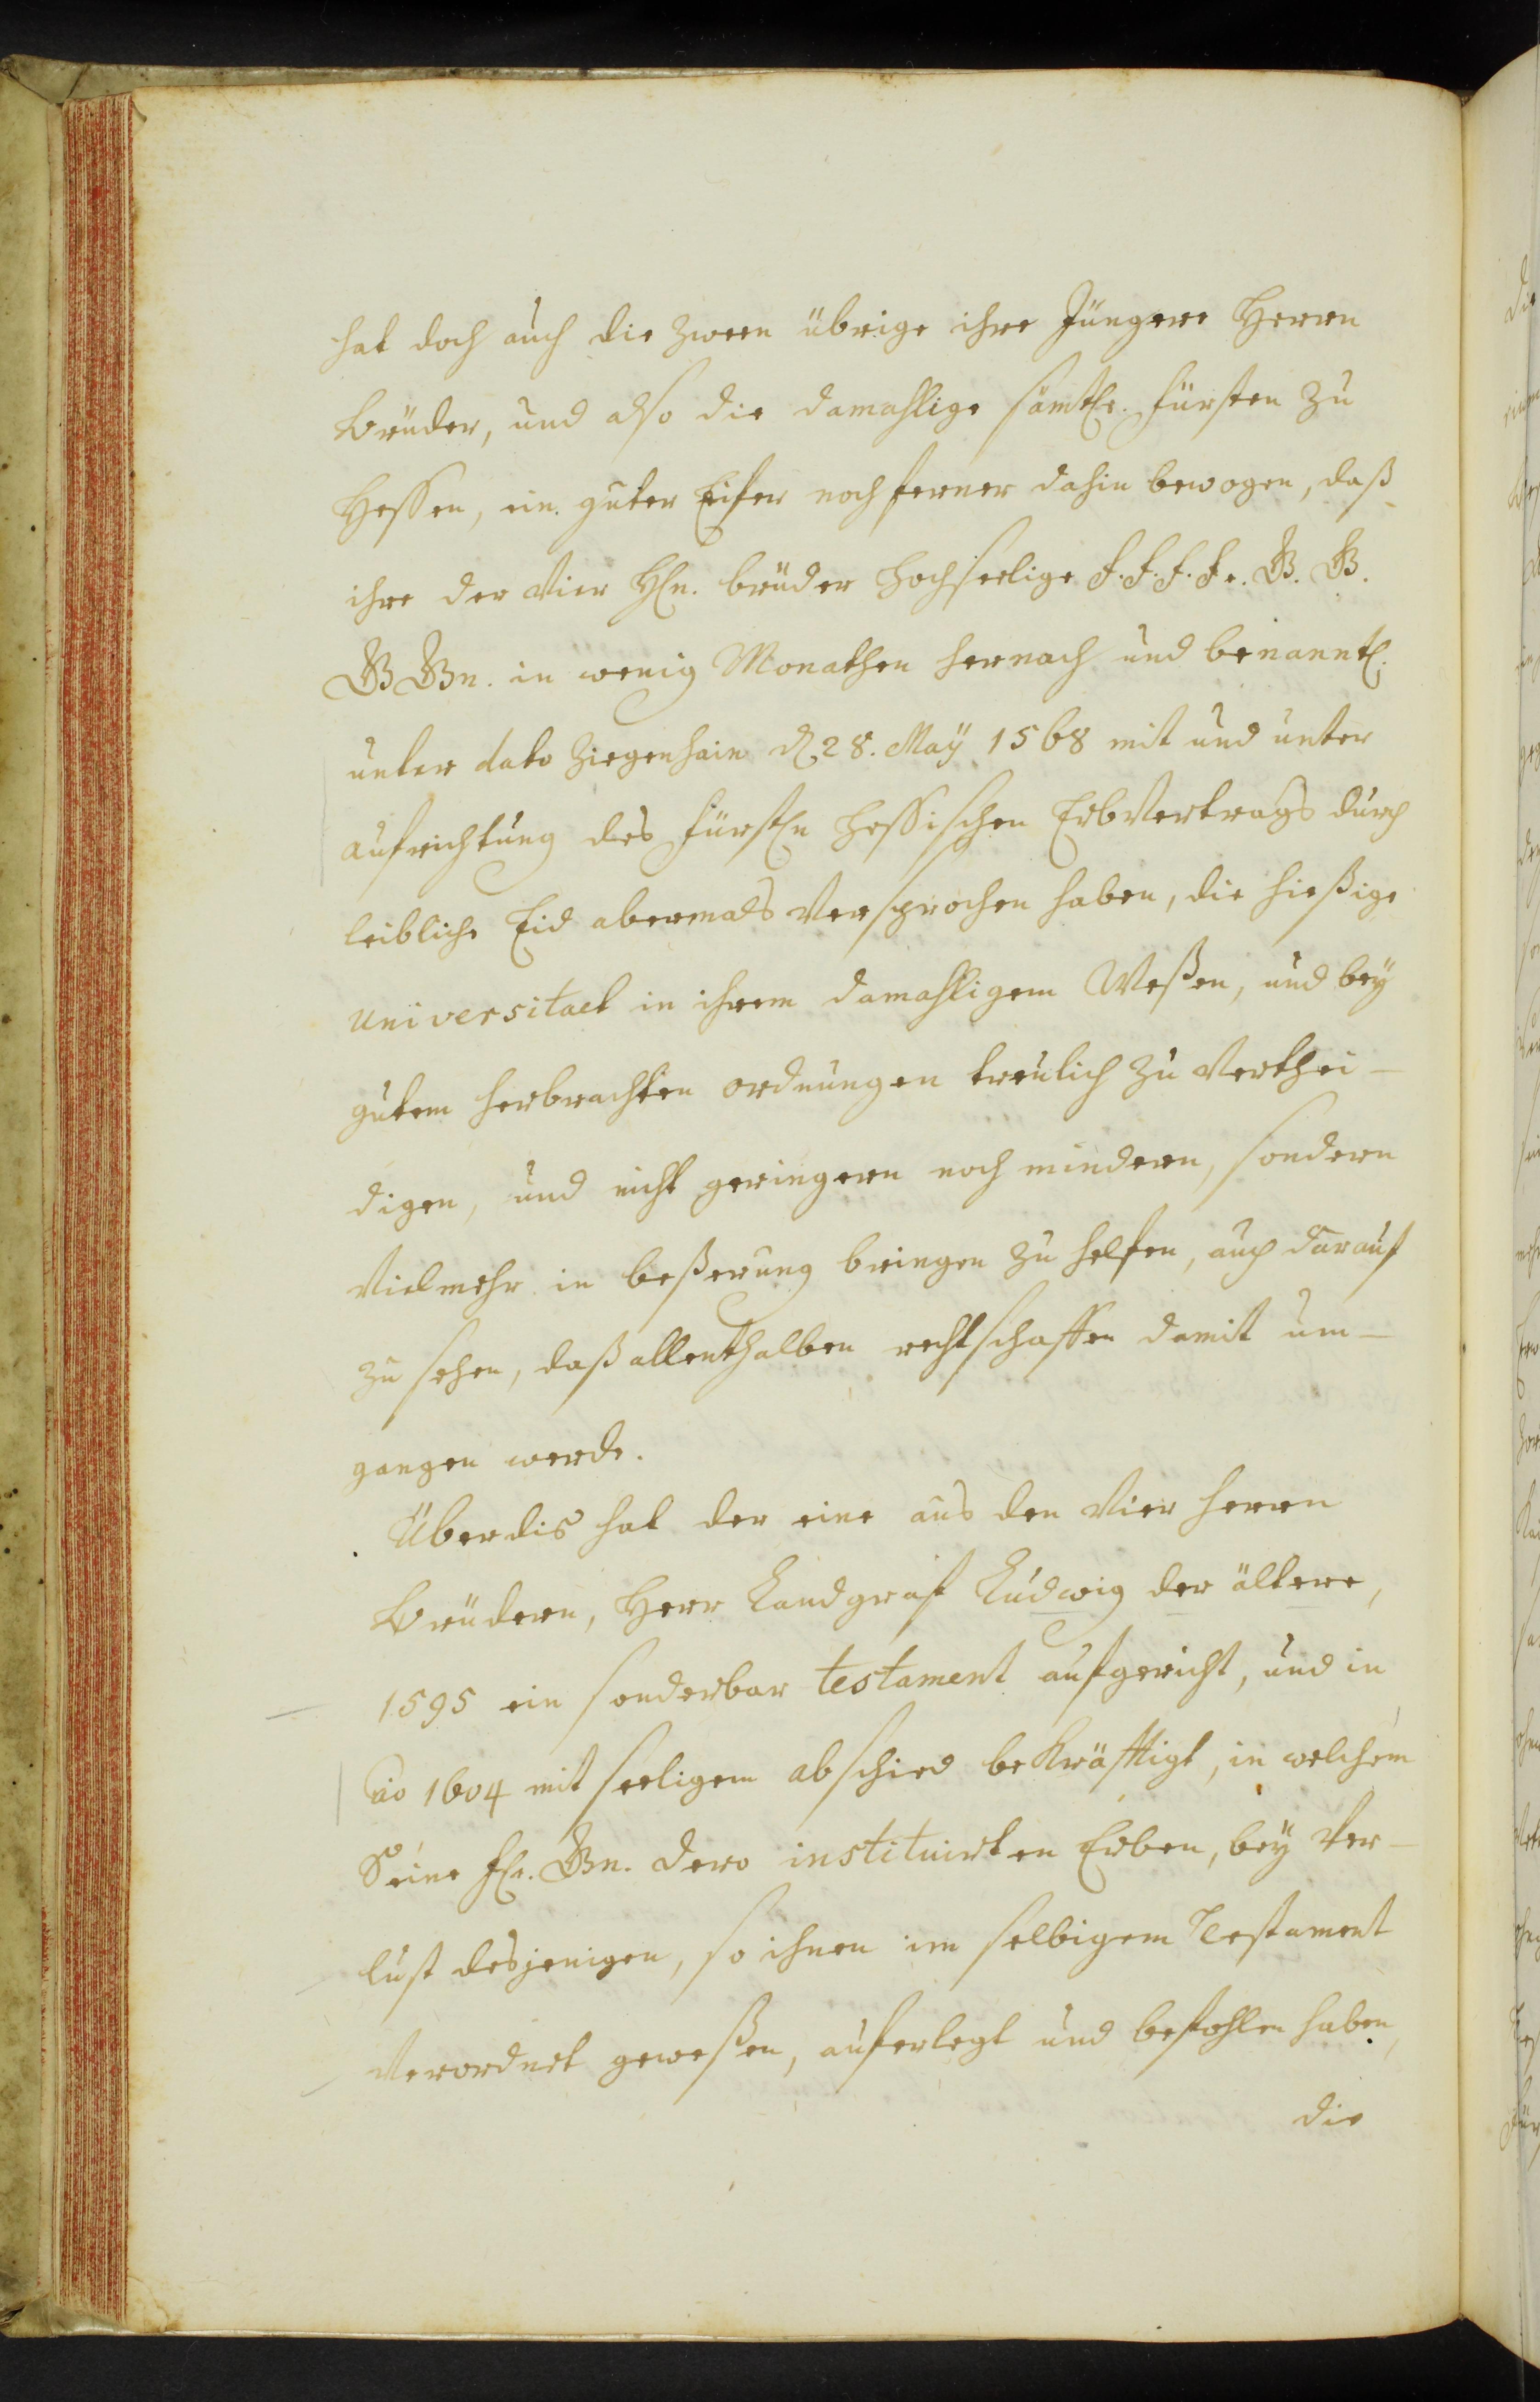 hat doch auch die zween übrige ihre Jüngere Herrn
Brüder, und also die damahlige sämtle. Fürsten zu
Hessen, ein guter Eifer noch ferner dahin bewogen, daß
ihre der Vier Hln. brüder hochseelige F. F. F. Fe. G. G.
G Gn. in wenig Monathen hernach und benanntl.
unter dato Ziegenhain d. 28. Maÿ 1568 mit und unter
aufrichtung des fürstln hessischen ErbVertrags durch
leibliche Eid abermals Versprochen haben, die hießige
Universitaet in ihrem damahligem Weßen, und beÿ
gutem herbrachten ordnungen treulich zu Verthei-
digen, und nicht geringern noch mindern, sondern
Vielmehr in beßerung bringen zu helfen, auch darauf
zu sehen, daß allenthalben rechtschaffen damit um-
gangen werde.
Überdis hat der eine aus den Vier herrn
Brüdern, Herr Landgraf Ludwig der ältere,
1595 ein sonderbar testament aufgericht, und in
ao 1604 mit seeligem abschied bekräfftigt, in welchem
Seine fle. Gn. dero instituirten Erben, beÿ Ver-
lust desjenigen, so ihnen im selbigem Testament
Verordnet geweßen, auferlegt und befohlen haben,
die